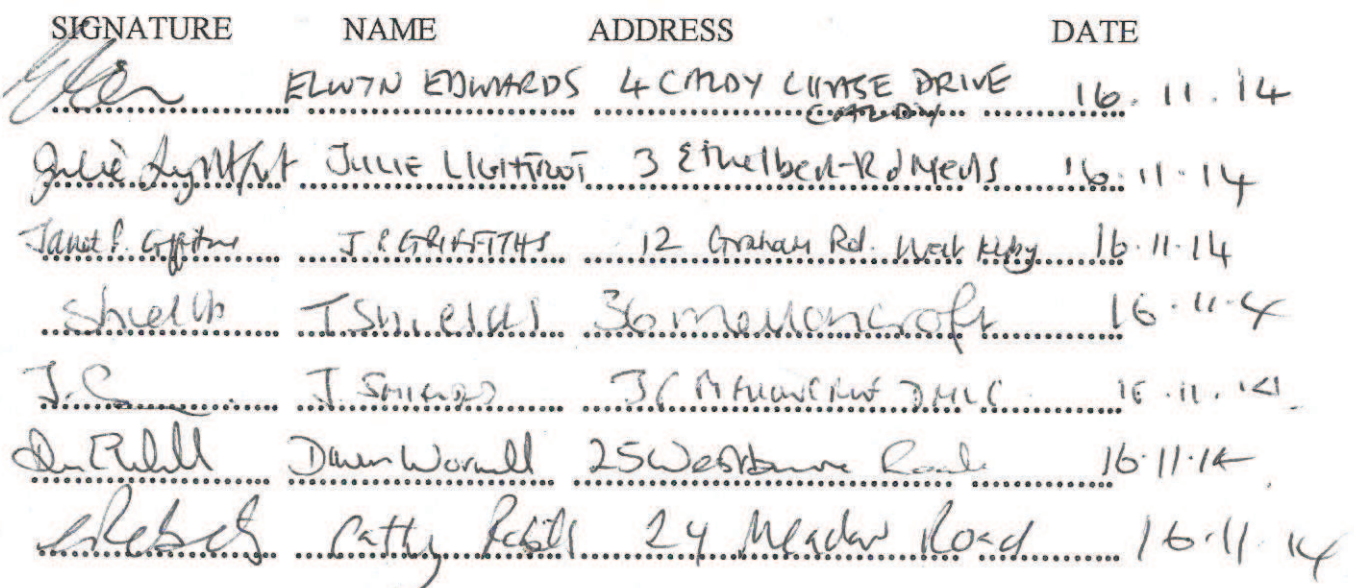 SIGNATURE NAME ADDRESS DATE
ELWYN EDWARDS 4 CALDY CHASE DRIVE 16.11.14
CALDY
Julie Lightfoot JULIE LIGHTFOOT 3 Ethelbert Rd Meols 16.11.14
Janet P. Griffiths J P GRIFFITHS 12 Graham Rd. West Kirby 16.11.14
Shields T Shields 36 meloncroft 16.11.4
J. J. SHIELDS 16.11.14
Worrall 25 Westbourne Road 16.11.14
Cathy 24 Meadow Road 16.11.14